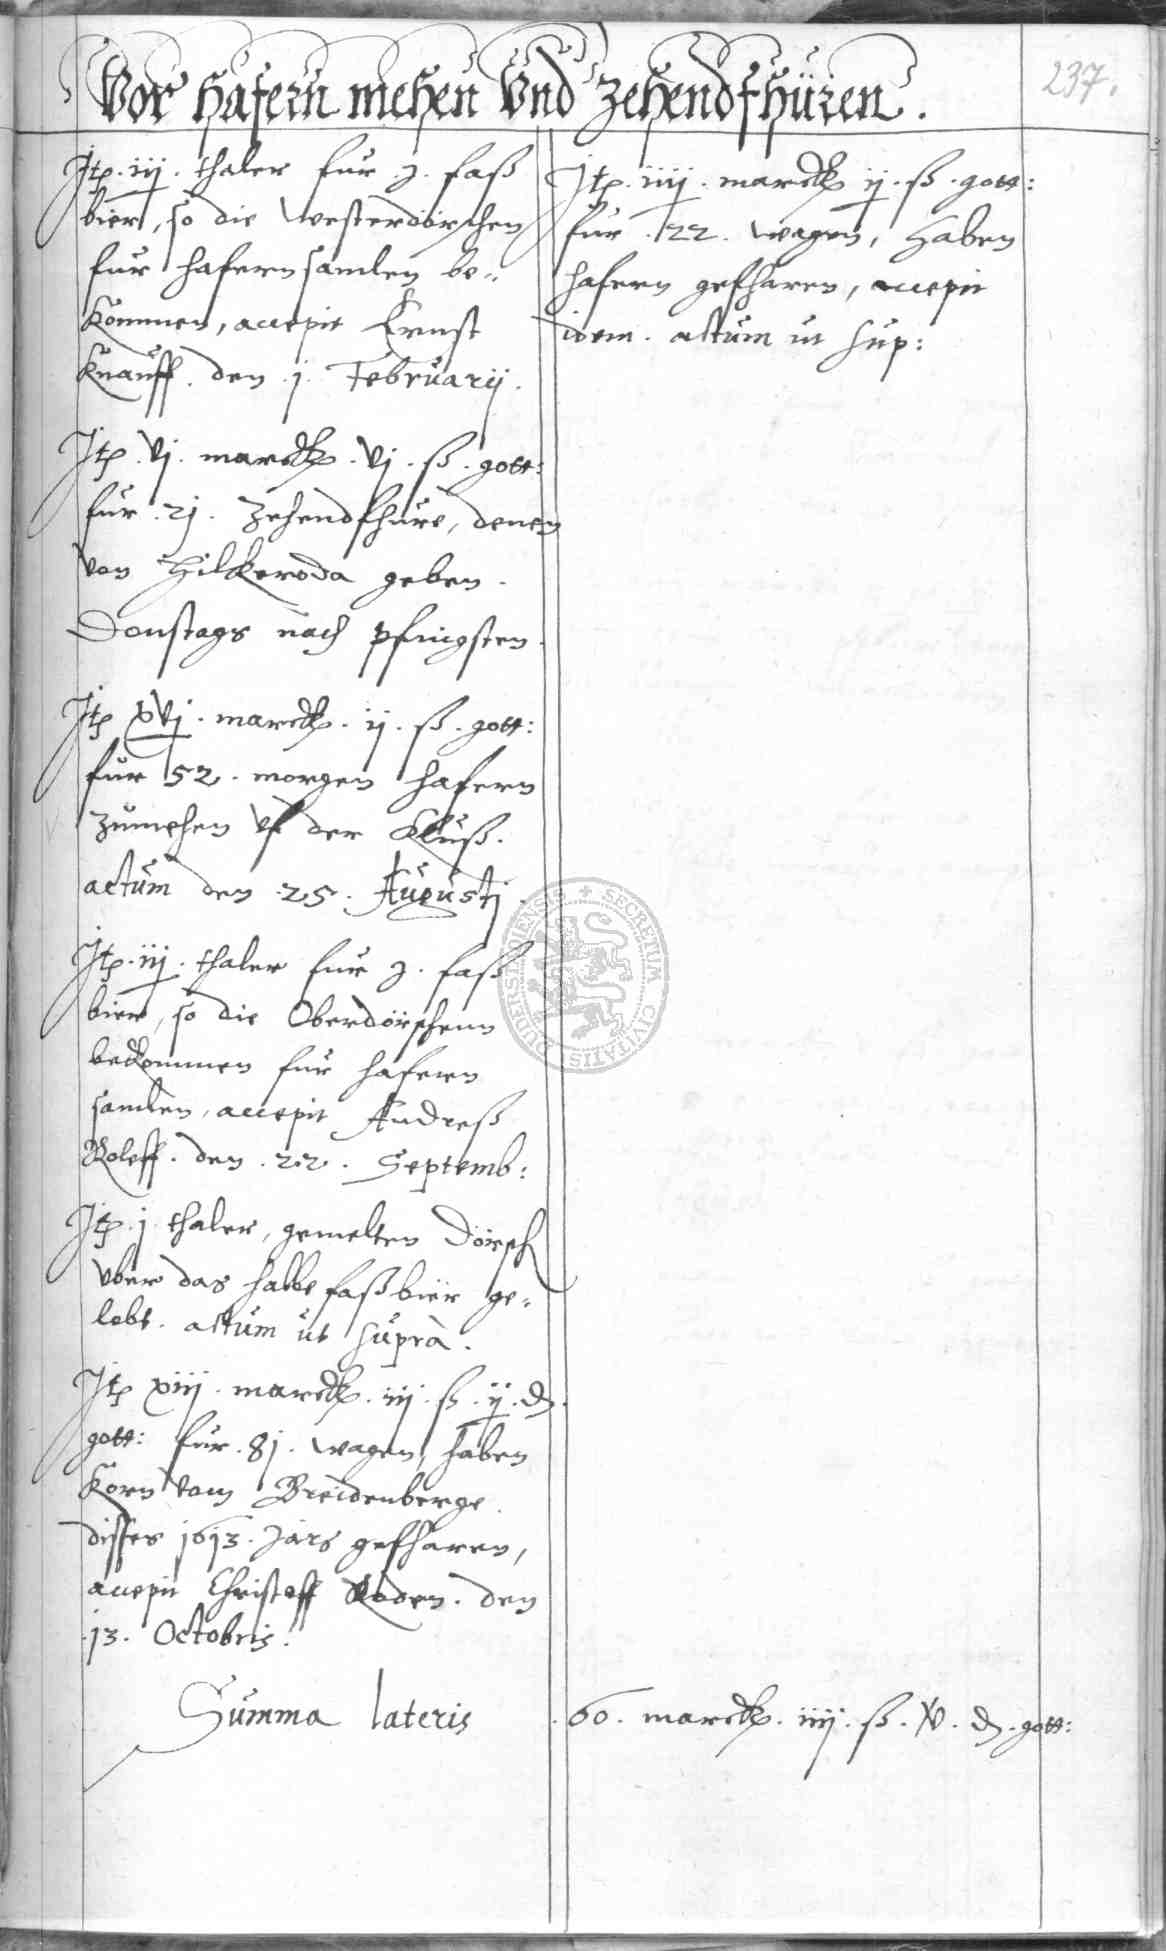 237.
Vor hafern mehen Vnd Zehendfhüren.
Itp. iij. thaler fur .j. faß
bier, so die Westerdörschen
fur hafern samlen be„
kommen, accepit Ernst
Knauff. den .j. Februarij.
Itp. vj. marck. vj. ß. gott:
fur .2j. Zehendfhure, denen
von Hilckeroda geben.
Donstags nach pfingsten.
Itp xvj. marck. ij. ß. gott:
fur 52. morgen hafern
zumehen vf der Kluß.
actum den .25. Augustj.
Itp. iij. thaler fur j. faß
bier, so die Oberdörschenn
beckommen fur hafern
samlen, accepit Andreß
Roleff. den .22. Septemb:
Itp. j. thaler, gemelten Dörsch
vber das halbe faßbier ge„
lebt. actum ut suprà.
Itp xiij. marck. iij. ß. ij. d.
gott: fur .8j. wagen, haben
Korn vom Breidenberge
disses j6j3. Jars gefharen,
accepit Christoff Roden. den
.j3. Octobris.
Itp. iiij. marck ij. ß. gott:
fur .22. wagen, haben
hafern gefharen, accepit
idem. actum ut sup:
Summa lateris .60. marck. iiij. ß. v. d. gott:
DUDERSTADIENSIS + SECRETUM CIVITATIS